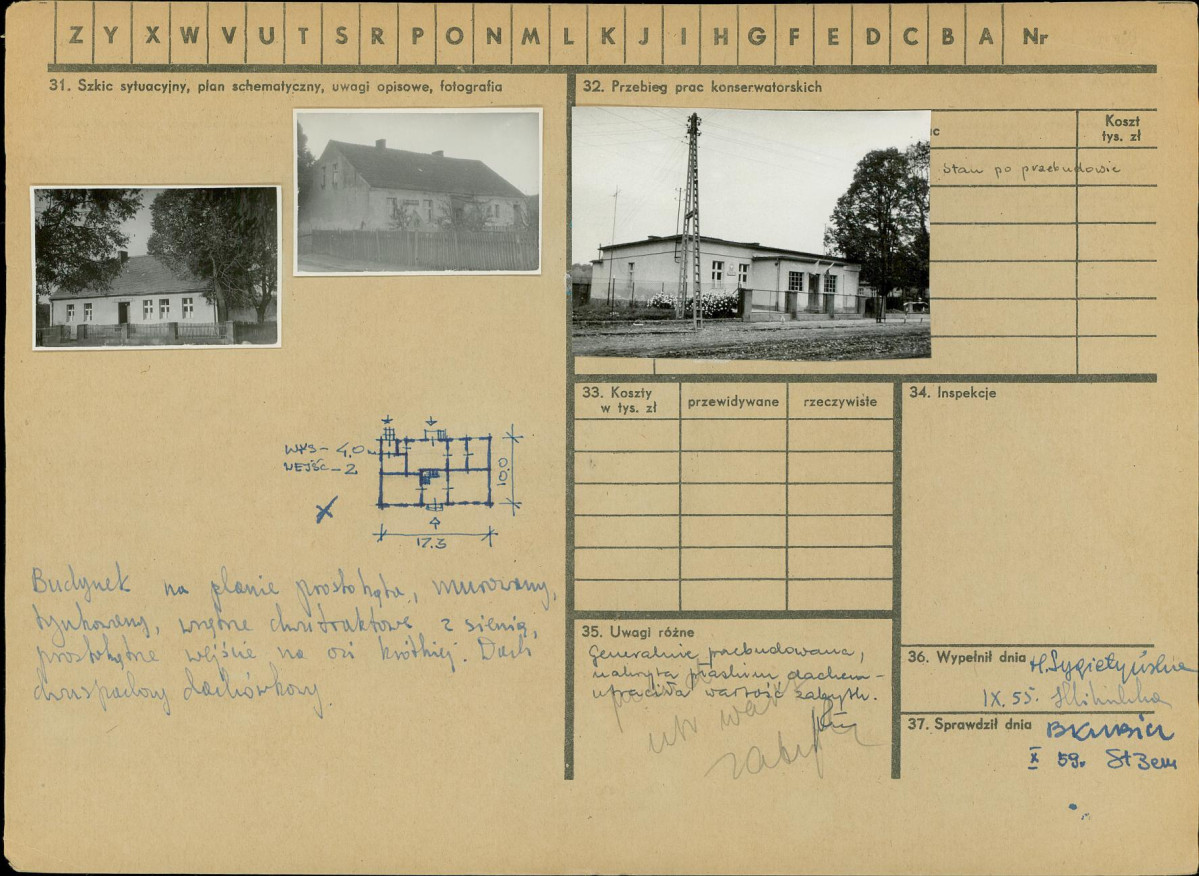 Z Y X W V U T S R P O N M L K J I H G F E D C B A Nr
31. Szkic sytuacyjny, plan schematyczny, uwagi opisowe, fotografia
WYS - 4,0 m
WEJŚĆ - 2
10.0
17.3
Budynek na planie prostokąta, murowany,
tynkowany, wnętrze dwutraktowe z sienią,
prostokątne wejście na osi krótkiej. Dach
dwuspadowy dachówkowy.
32. Przebieg prac konserwatorskich
Koszt
tys. zł
Stan po przebudowie
33. Koszty
w tys. zł
przewidywane
rzeczywiste
34. Inspekcje
35. Uwagi różne
Generalnie przebudowana,
nakryta płaskim dachem -
utraciła wartość zabytk.
utr wart
36. Wypełnił dnia
IX. 55.
37. Sprawdził dnia
X 59.